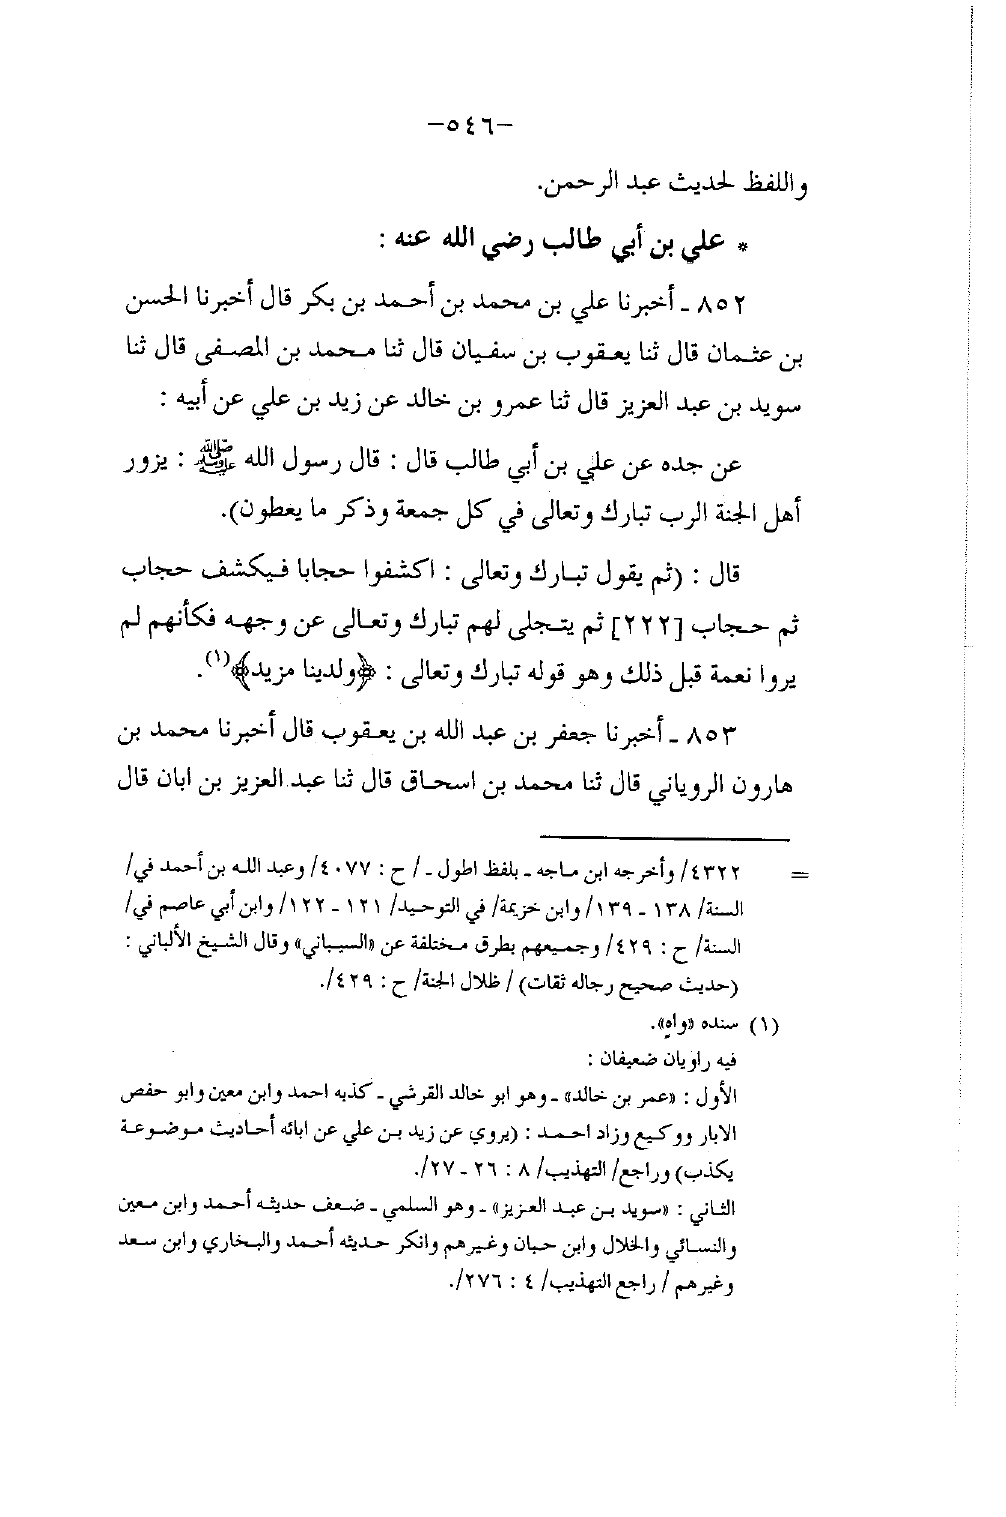 -٥٤٦-
واللفظ لحديث عبد الرحمن.
* علي بن أبي طالب رضي الله عنه :
٨٥٢ ـ أخبرنا علي بن محمد بن أحمد بن بكر قال أخبرنا الحسن
بن عثمان قال ثنا يعقوب بن سفيان قال ثنا محمد بن المصفى قال ثنا
سويد بن عبد العزيز قال ثنا عمرو بن خالد عن زيد بن علي عن أبيه :
عن جده عن علي بن أبي طالب قال : قال رسول الله ﷺ : يزور
أهل الجنة الرب تبارك وتعالى في كل جمعة وذكر ما يعطون).
قال : (ثم يقول تبارك وتعالى : اكشفوا حجابا فيكشف حجاب
ثم حجاب [٢٢٢] ثم يتجلى لهم تبارك وتعالى عن وجهه فكأنهم لم
يروا نعمة قبل ذلك وهو قوله تبارك وتعالى : ﴿ولدينا مزيد﴾(١).
٨٥٣ ـ أخبرنا جعفر بن عبد الله بن يعقوب قال أخبرنا محمد بن
هارون الروياني قال ثنا محمد بن اسحاق قال ثنا عبد العزيز بن ابان قال
= ٤٣٢٢/ وأخرجه ابن ماجه ـ بلفظ اطول ـ/ ح : ٤٠٧٧/ وعبد الله بن أحمد في/
السنة/ ١٣٨ ـ ١٣٩/ وابن خزيمة/ في التوحيد/ ١٢١ ـ ١٢٢/ وابن أبي عاصم في/
السنة/ ح : ٤٢٩/ وجميعهم بطرق مختلفة عن «السيباني» وقال الشيخ الألباني :
(حديث صحيح رجاله ثقات) / ظلال الجنة/ ح : ٤٢٩/.
(١) سنده «واهٍ».
فيه راويان ضعيفان :
الأول : «عمر بن خالد» ـ وهو ابو خالد القرشي ـ كذبه احمد وابن معين وابو حفص
الابار ووكيع وزاد احمد : (يروي عن زيد بن علي عن ابائه أحاديث موضوعة
يكذب) وراجع/ التهذيب/ ٨ : ٢٦ ـ ٢٧/.
الثاني : «سويد بن عبد العزيز» ـ وهو السلمي ـ ضعف حديثه أحمد وابن معين
والنسائي والخلال وابن حبان وغيرهم وانكر حديثه أحمد والبخاري وابن سعد
وغيرهم / راجع التهذيب/ ٤ : ٢٧٦/.